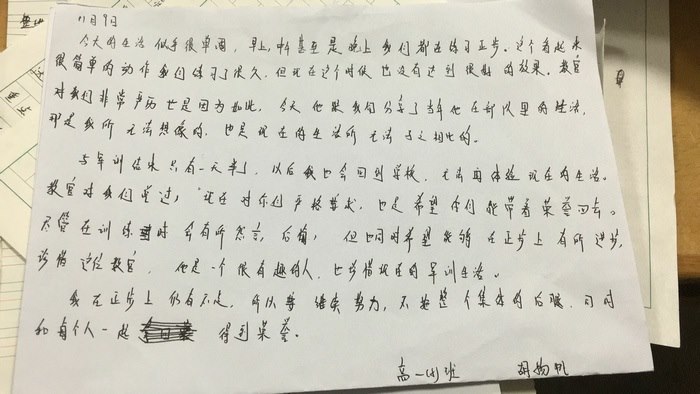 11月9日
今天的生活似乎很单调,早上,中午甚至是晚上我们都在练习正步。这个看起来
很简单的动作我们练习了很久,但现在这个时候也没有达到很好的效果。教官
对我们非常严厉也是因为如此,今天他跟我们分享了当年他在部队里的生活,
那是我所无法想像的,也是现在的生活所无法与之相比的。
离军训结束只有一天半了,以后我也会回到学校,无法再体验现在的生活。
教官对我们说过,"现在对你们严格要求,也是希望你们能带着荣誉回去。
不管在训练时会有所怨言,后悔,但也同时希望能够在正步上有所进步,
珍惜这位教官,他是一个很有趣的人,也珍惜现在的军训生活。
我在正步上仍有不足,所以要继续努力,不拖整个集体的后腿,同时
和每个人一起得到荣誉。
高一(4)班 胡杨帆